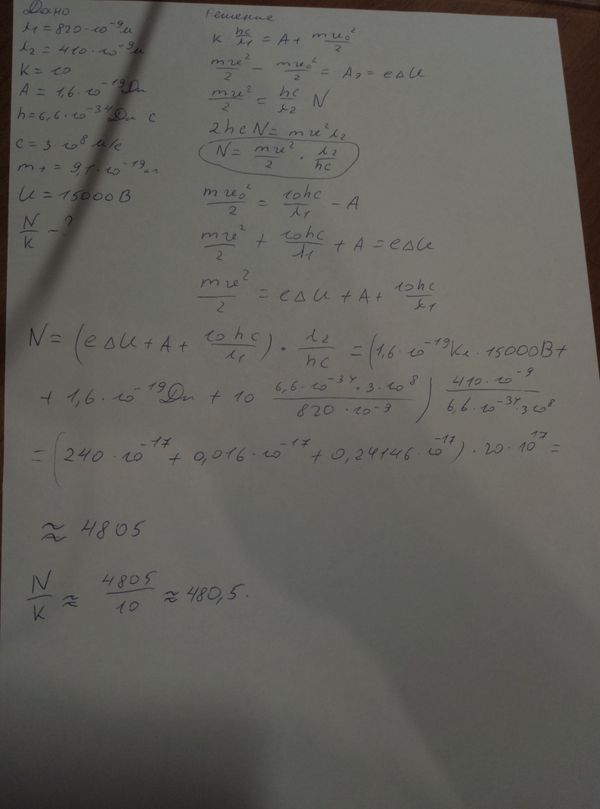 Дано
λ₁ = 820·10⁻⁹ м
λ₂ = 410·10⁻⁹ м
K = 10
A = 1,6·10⁻¹⁹ Дж
h = 6,6·10⁻³⁴ Дж с
c = 3·10⁸ м/с
m = 9,1·10⁻¹⁹ кг
U = 15000 В
N/K - ?
Решение
K hc/λ₁ = A + mv₀²/2
mv²/2 - mv₀²/2 = Aэ = eΔU
mv²/2 = hc/λ₂ N
2hcN = mv²λ₂
N = mv²/2 · λ₂/hc
mv₀²/2 = 10hc/λ₁ - A
mv²/2 + 10hc/λ₁ + A = eΔU
mv²/2 = eΔU + A + 10hc/λ₁
N = (eΔU + A + 10hc/λ₁) · λ₂/hc = (1,6·10⁻¹⁹ Кл · 15000 В +
+ 1,6·10⁻¹⁹ Дж + 10 6,6·10⁻³⁴·3·10⁸/820·10⁻⁹) 410·10⁻⁹/6,6·10⁻³⁴·3·10⁸
= (240·10⁻¹⁷ + 0,016·10⁻¹⁷ + 0,24146·10⁻¹⁷) · 20·10¹⁷ =
≈ 4805
N/K ≈ 4805/10 ≈ 480,5.